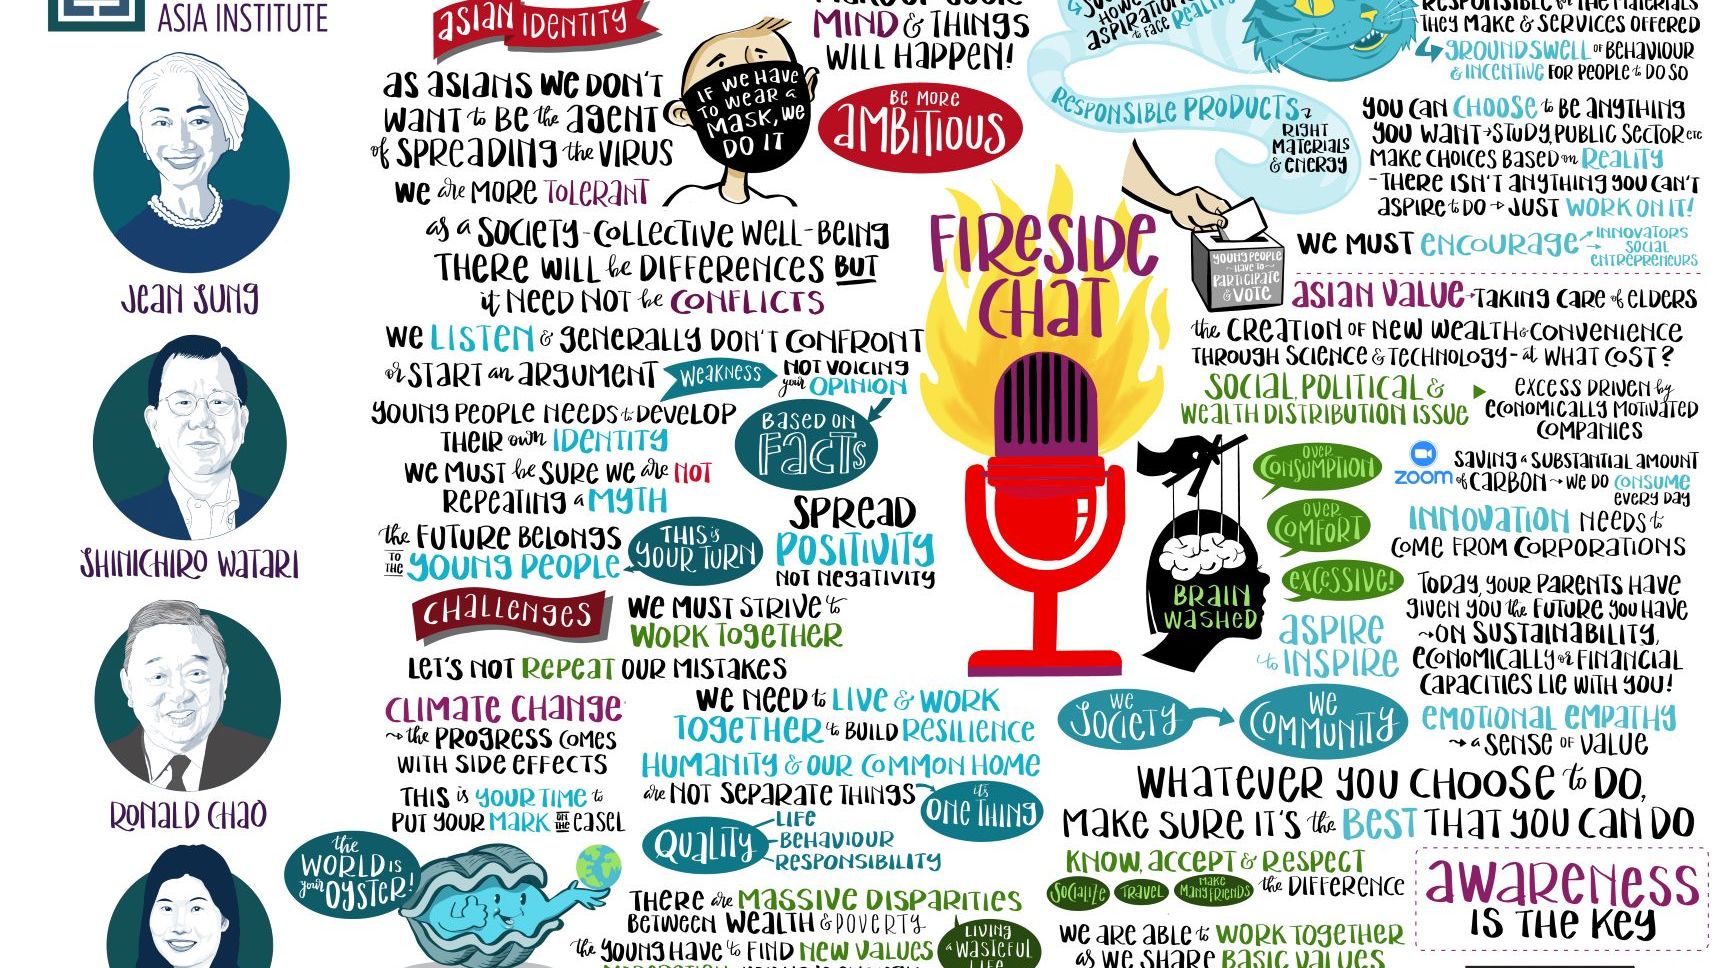 ASIA INSTITUTE
JEAN SUNG
SHINICHIRO WATARI
RONALD CHAO
ASIAN IDENTITY
AS ASIANS WE DON'T
WANT to BE the AGENT
of SPREADING the VIRUS
WE are MORE TOLERANT
IF WE HAVE
TO WEAR a
MASK, WE
DO IT
MIND & THINGS
WILL HAPPEN!
BE MORE
AMBITIOUS
as a SOCIETY - COLLECTIVE WELL-BEING
THERE WILL be DIFFERENCES BUT
it NEED NOT be CONFLICTS
WE LISTEN & GENERALLY DON'T CONFRONT
or START an ARGUMENT
WEAKNESS
NOT VOICING
your OPINION
BASED ON
FACTS
YOUNG PEOPLE NEEDS to DEVELOP
THEIR own IDENTITY
WE MUST be SURE WE are NOT
REPEATING a MYTH
the FUTURE BELONGS
TO THE YOUNG PEOPLE
THIS is
YOUR TURN
SPREAD
POSITIVITY
NOT NEGATIVITY
CHALLENGES
WE MUST STRIVE to
WORK TOGETHER
LET'S NOT REPEAT OUR MISTAKES
CLIMATE CHANGE
the PROGRESS COMES
WITH SIDE EFFECTS
THIS is YOUR TIME to
PUT YOUR MARK on the EASEL
WE NEED to LIVE & WORK
TOGETHER to BUILD RESILIENCE
HUMANITY & OUR COMMON HOME
are NOT SEPARATE THINGS
it's
ONE THING
QUALITY
LIFE
BEHAVIOUR
RESPONSIBILITY
the
WORLD IS
your OYSTER!
THERE are MASSIVE DISPARITIES
BETWEEN WEALTH & POVERTY
the YOUNG HAVE to FIND NEW VALUES
LIVING
a WASTEFUL
LIFE
FIRESIDE
CHAT
ASPIRATION
to FACE REALITY
RESPONSIBLE PRODUCTS
RIGHT
MATERIALS
& ENERGY
RESPONSIBLE for the MATERIALS
THEY MAKE & SERVICES OFFERED
GROUNDSWELL OF BEHAVIOUR
& INCENTIVE FOR PEOPLE to DO SO
YOU CAN CHOOSE to BE ANYTHING
YOU WANT STUDY, PUBLIC SECTOR etc
MAKE CHOICES BASED on REALITY
- THERE ISN'T ANYTHING YOU CAN'T
ASPIRE to DO JUST WORK ON IT!
WE MUST ENCOURAGE
INNOVATORS
SOCIAL
ENTREPRENEURS
YOUNG PEOPLE
HAVE to
PARTICIPATE
& VOTE
ASIAN VALUE TAKING CARE of ELDERS
the CREATION OF NEW WEALTH & CONVENIENCE
THROUGH SCIENCE & TECHNOLOGY - at WHAT COST?
SOCIAL, POLITICAL &
WEALTH DISTRIBUTION ISSUE
EXCESS DRIVEN by
ECONOMICALLY MOTIVATED
COMPANIES
OVER
CONSUMPTION
OVER
COMFORT
EXCESSIVE!
BRAIN
WASHED
zoom
SAVING a SUBSTANTIAL AMOUNT
of CARBON WE DO CONSUME
EVERY DAY
INNOVATION NEEDS to
COME FROM CORPORATIONS
TODAY, YOUR PARENTS HAVE
GIVEN YOU the FUTURE YOU HAVE
ON SUSTAINABILITY,
ECONOMICALLY or FINANCIAL
CAPACITIES LIE WITH YOU!
ASPIRE
to INSPIRE
WE
SOCIETY
WE
COMMUNITY
EMOTIONAL EMPATHY
a SENSE OF VALUE
WHATEVER YOU CHOOSE to DO,
MAKE SURE IT'S the BEST THAT YOU CAN DO
KNOW, ACCEPT & RESPECT
the DIFFERENCE
SOCIALIZE
TRAVEL
MAKE
MANY FRIENDS
WE ARE ABLE to WORK TOGETHER
as WE SHARE BASIC VALUES
AWARENESS
IS THE KEY